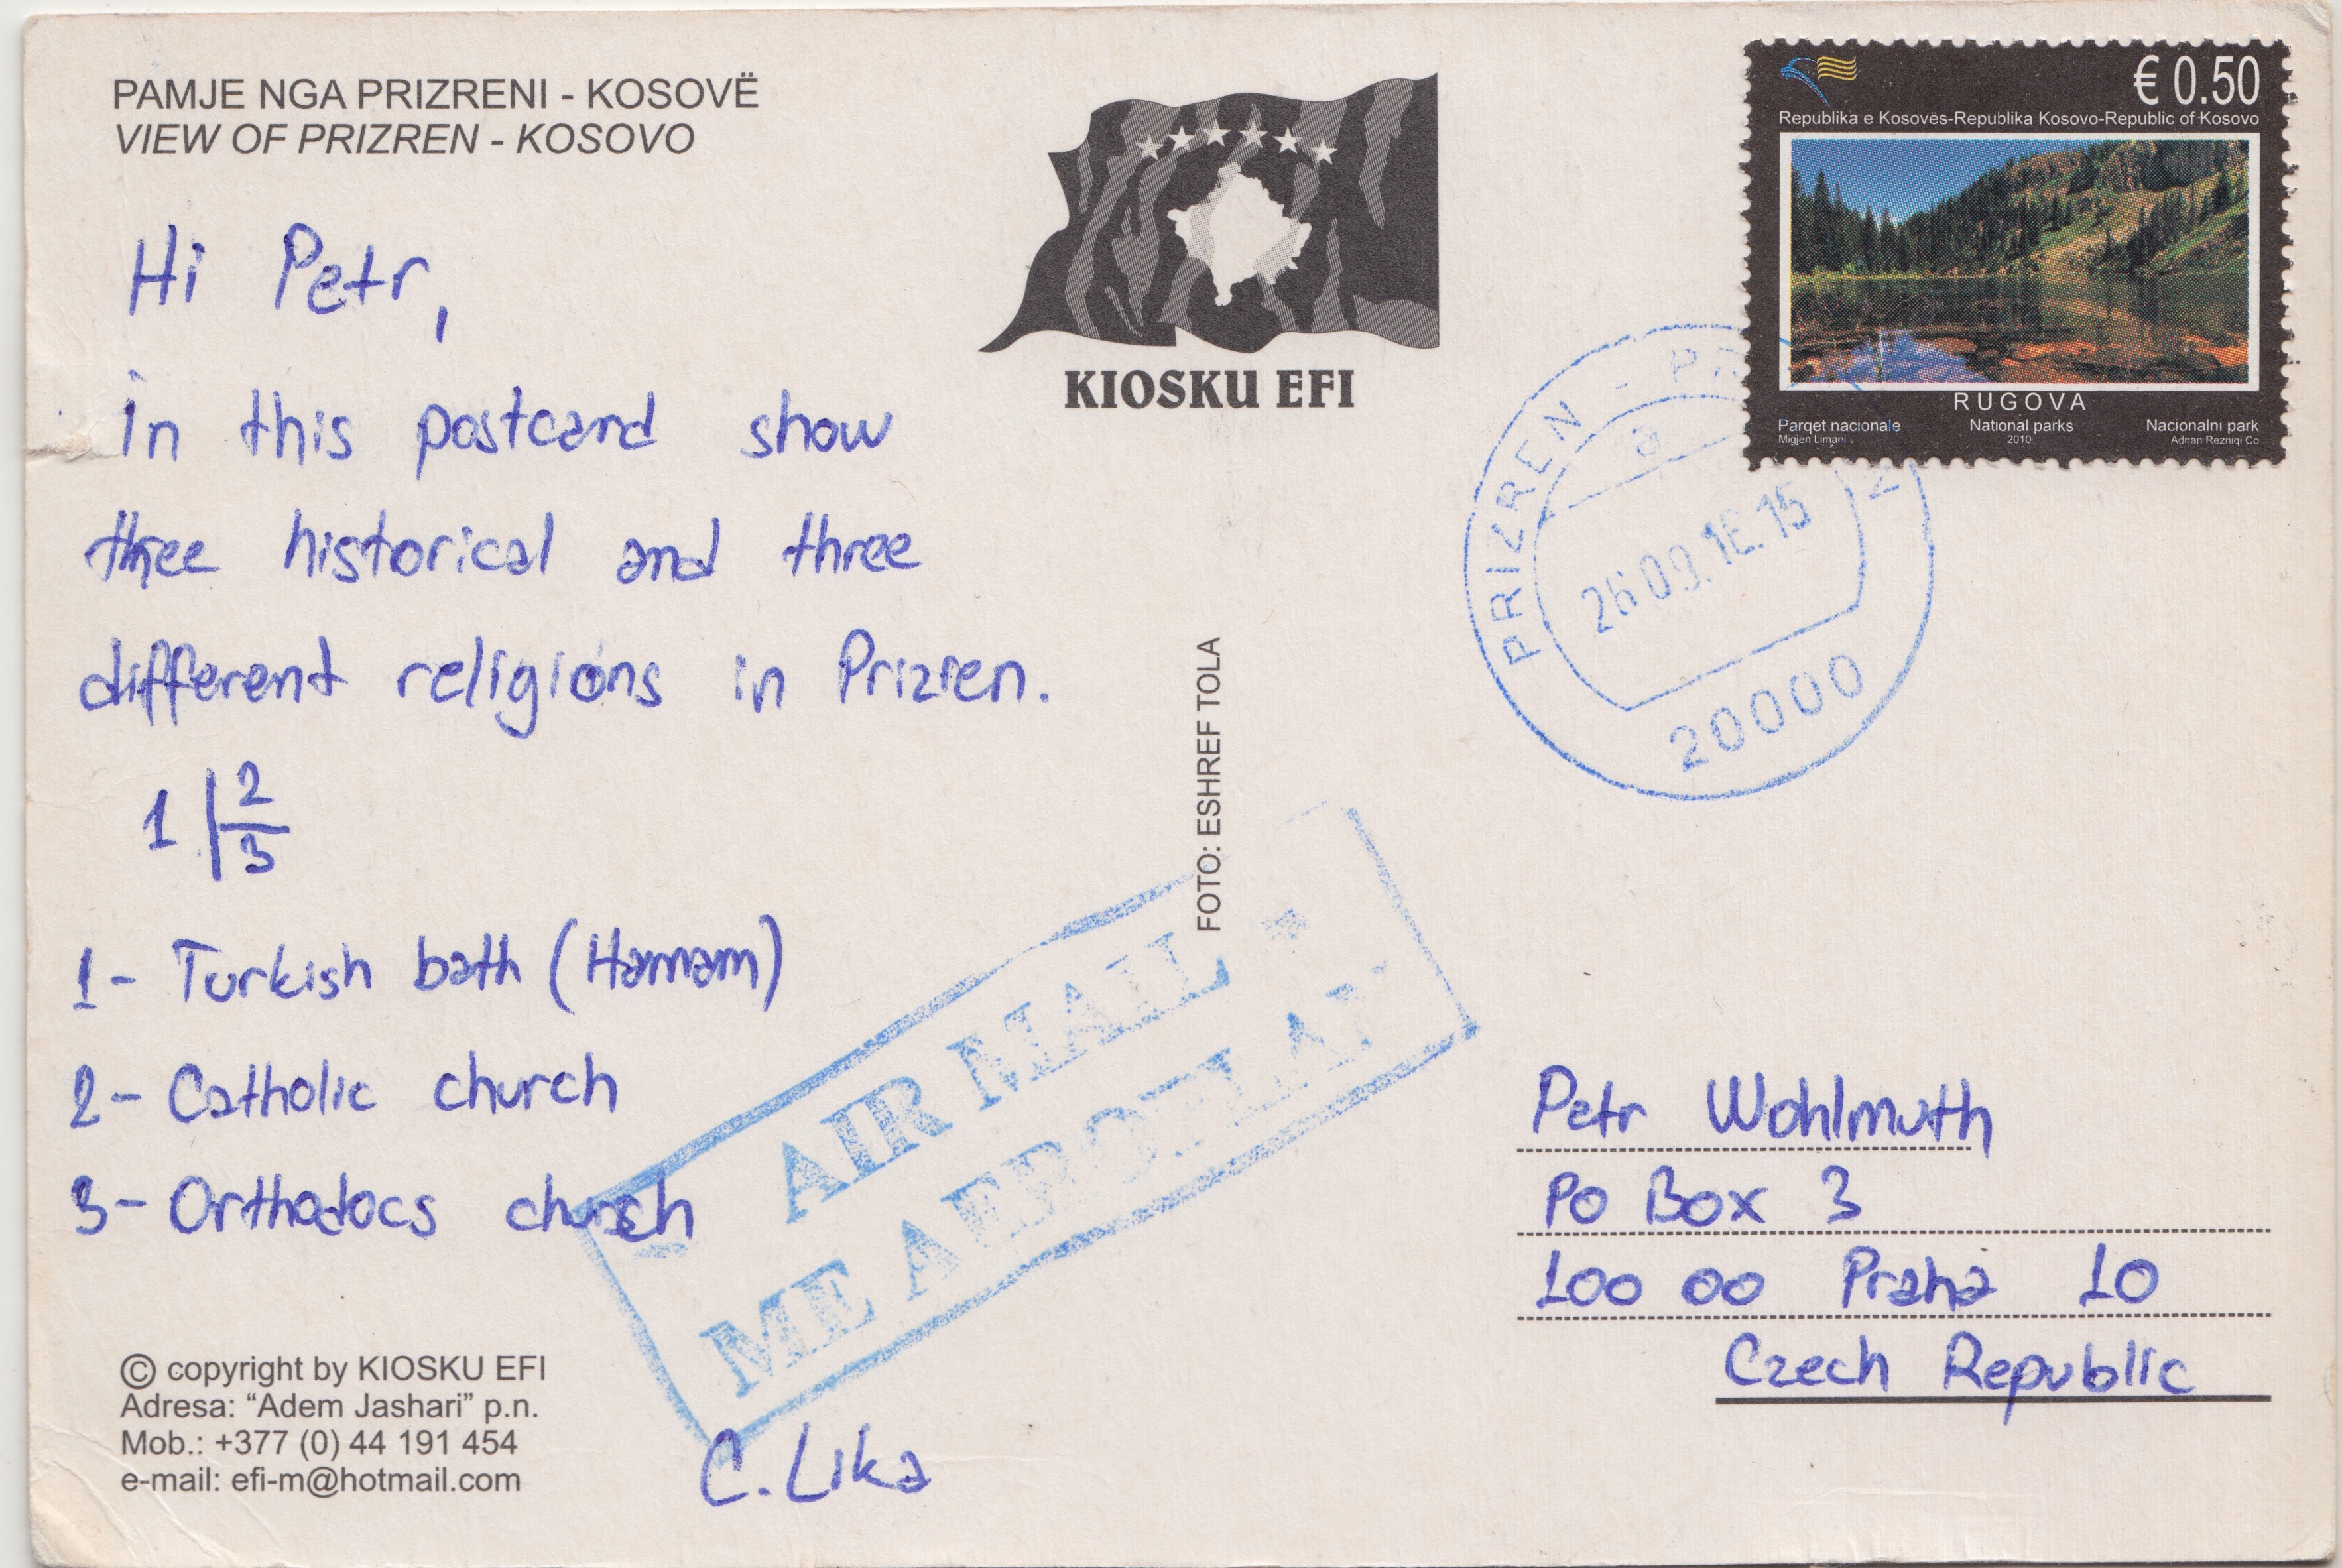 PAMJE NGA PRIZRENI - KOSOVË
VIEW OF PRIZREN - KOSOVO
Hi Petr,
in this postcard show
three historical and three
different religions in Prizren.
1 2
3
1- Turkish bath (Hamam)
2- Catholic church
3- Orthodocs church
© copyright by KIOSKU EFI
Adresa: “Adem Jashari” p.n.
Mob.: +377 (0) 44 191 454
e-mail: efi-m@hotmail.com
C. Lika
KIOSKU EFI
FOTO: ESHREF TOLA
AIR MAIL
ME AEROPLAN
€ 0.50
Republika e Kosovës-Republika Kosovo-Republic of Kosovo
RUGOVA
Parqet nacionale National parks Nacionalni park
Migjen Limani 2010 Adnan Rezniqi Co
PRIZREN -
a
20000
Petr Wohlmuth
PO Box 3
100 00 Praha 10
Czech Republic